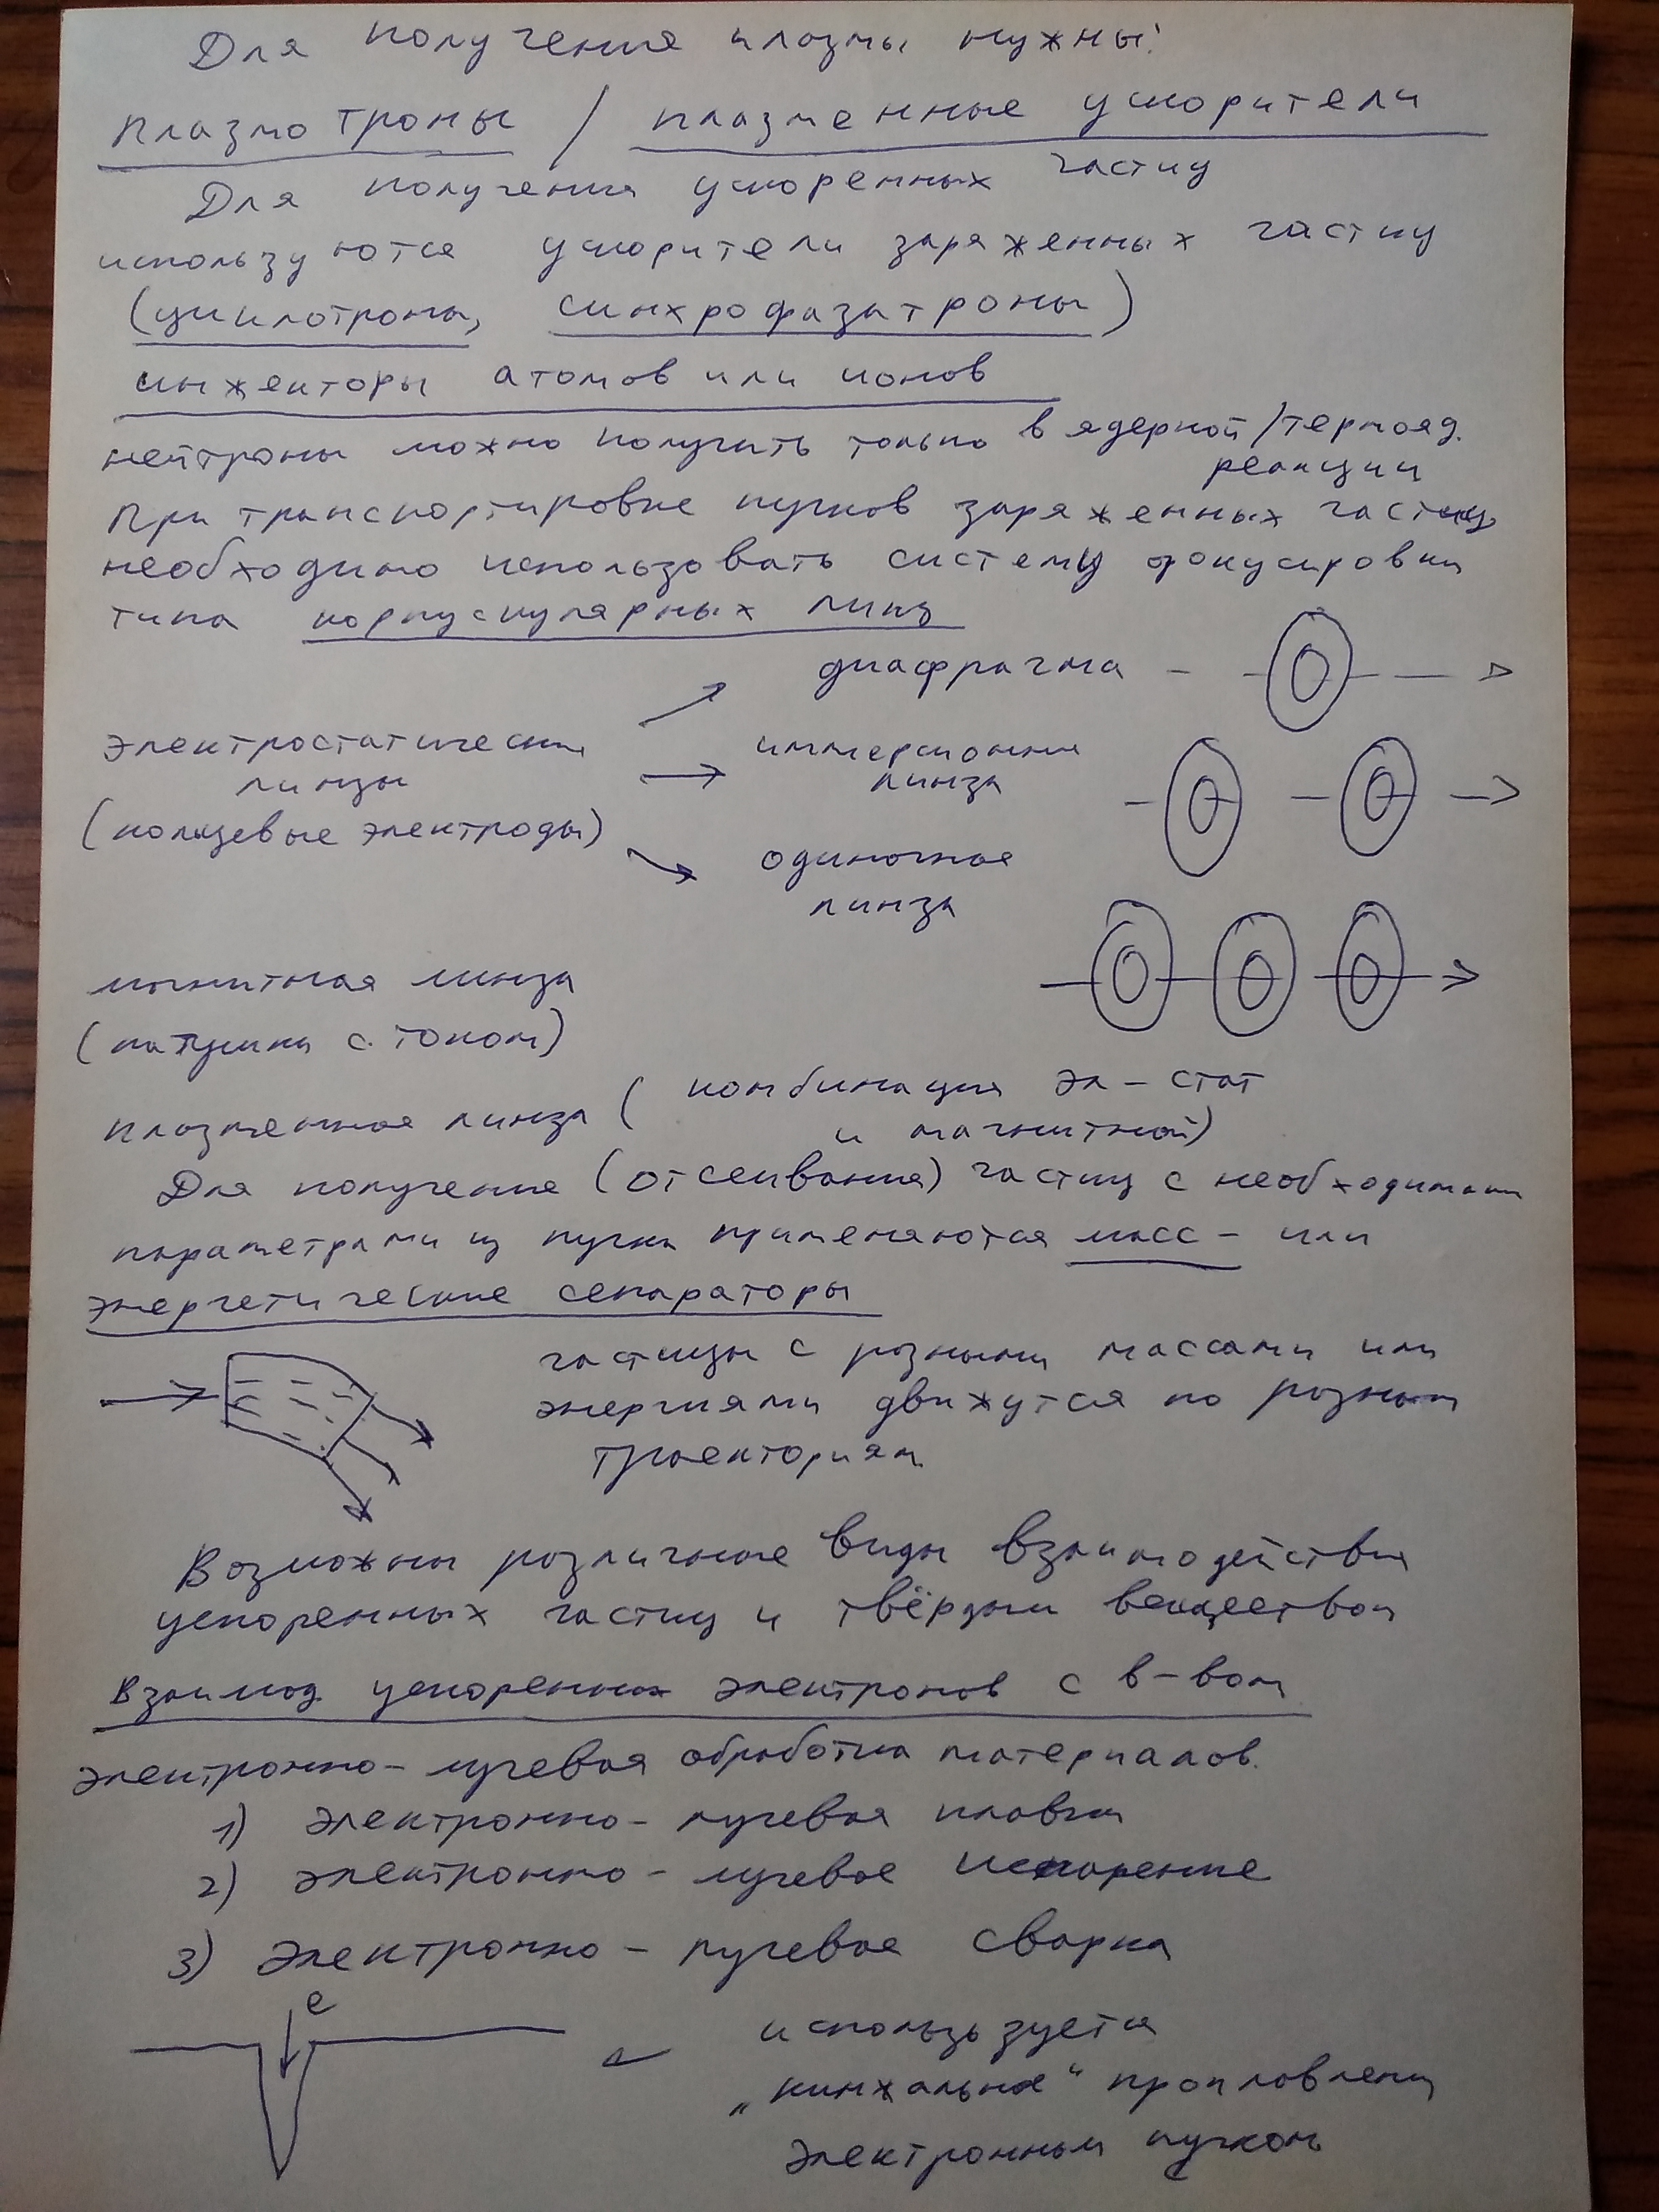 Для получения плазмы нужны:
плазмотроны / плазменные ускорители
Для получения ускоренных частиц
используются ускорители заряженных частиц
(циклотроны, синхрофазатроны)
инжекторы атомов или ионов
нейтроны можно получить только в ядерной/термояд.
реакции
При транспортировке пучков заряженных частиц
необходимо использовать систему фокусировки
типа корпускулярных линз
диафрагма -
электростатические
линзы
(кольцевые электроды)
иммерсионная
линза
одиночная
линза
магнитная линза
(катушки с током)
плазменная линза (комбинация эл-стат
и магнитной)
Для получения (отсеивания) частиц с необходимыми
параметрами из пучка применяются масс- или
энергетические сепараторы
частицы с разными массами или
энергиями движутся по разным
траекториям
Возможны различные виды взаимодействия
ускоренных частиц и твёрдым веществом
Взаимод. ускоренных электронов с в-вом
электронно-лучевая обработка материалов.
1) электронно-лучевая плавка
2) электронно-лучевое испарение
3) электронно-лучевая сварка
e
используется
„кинжальное“ проплавлени
электронным пучком